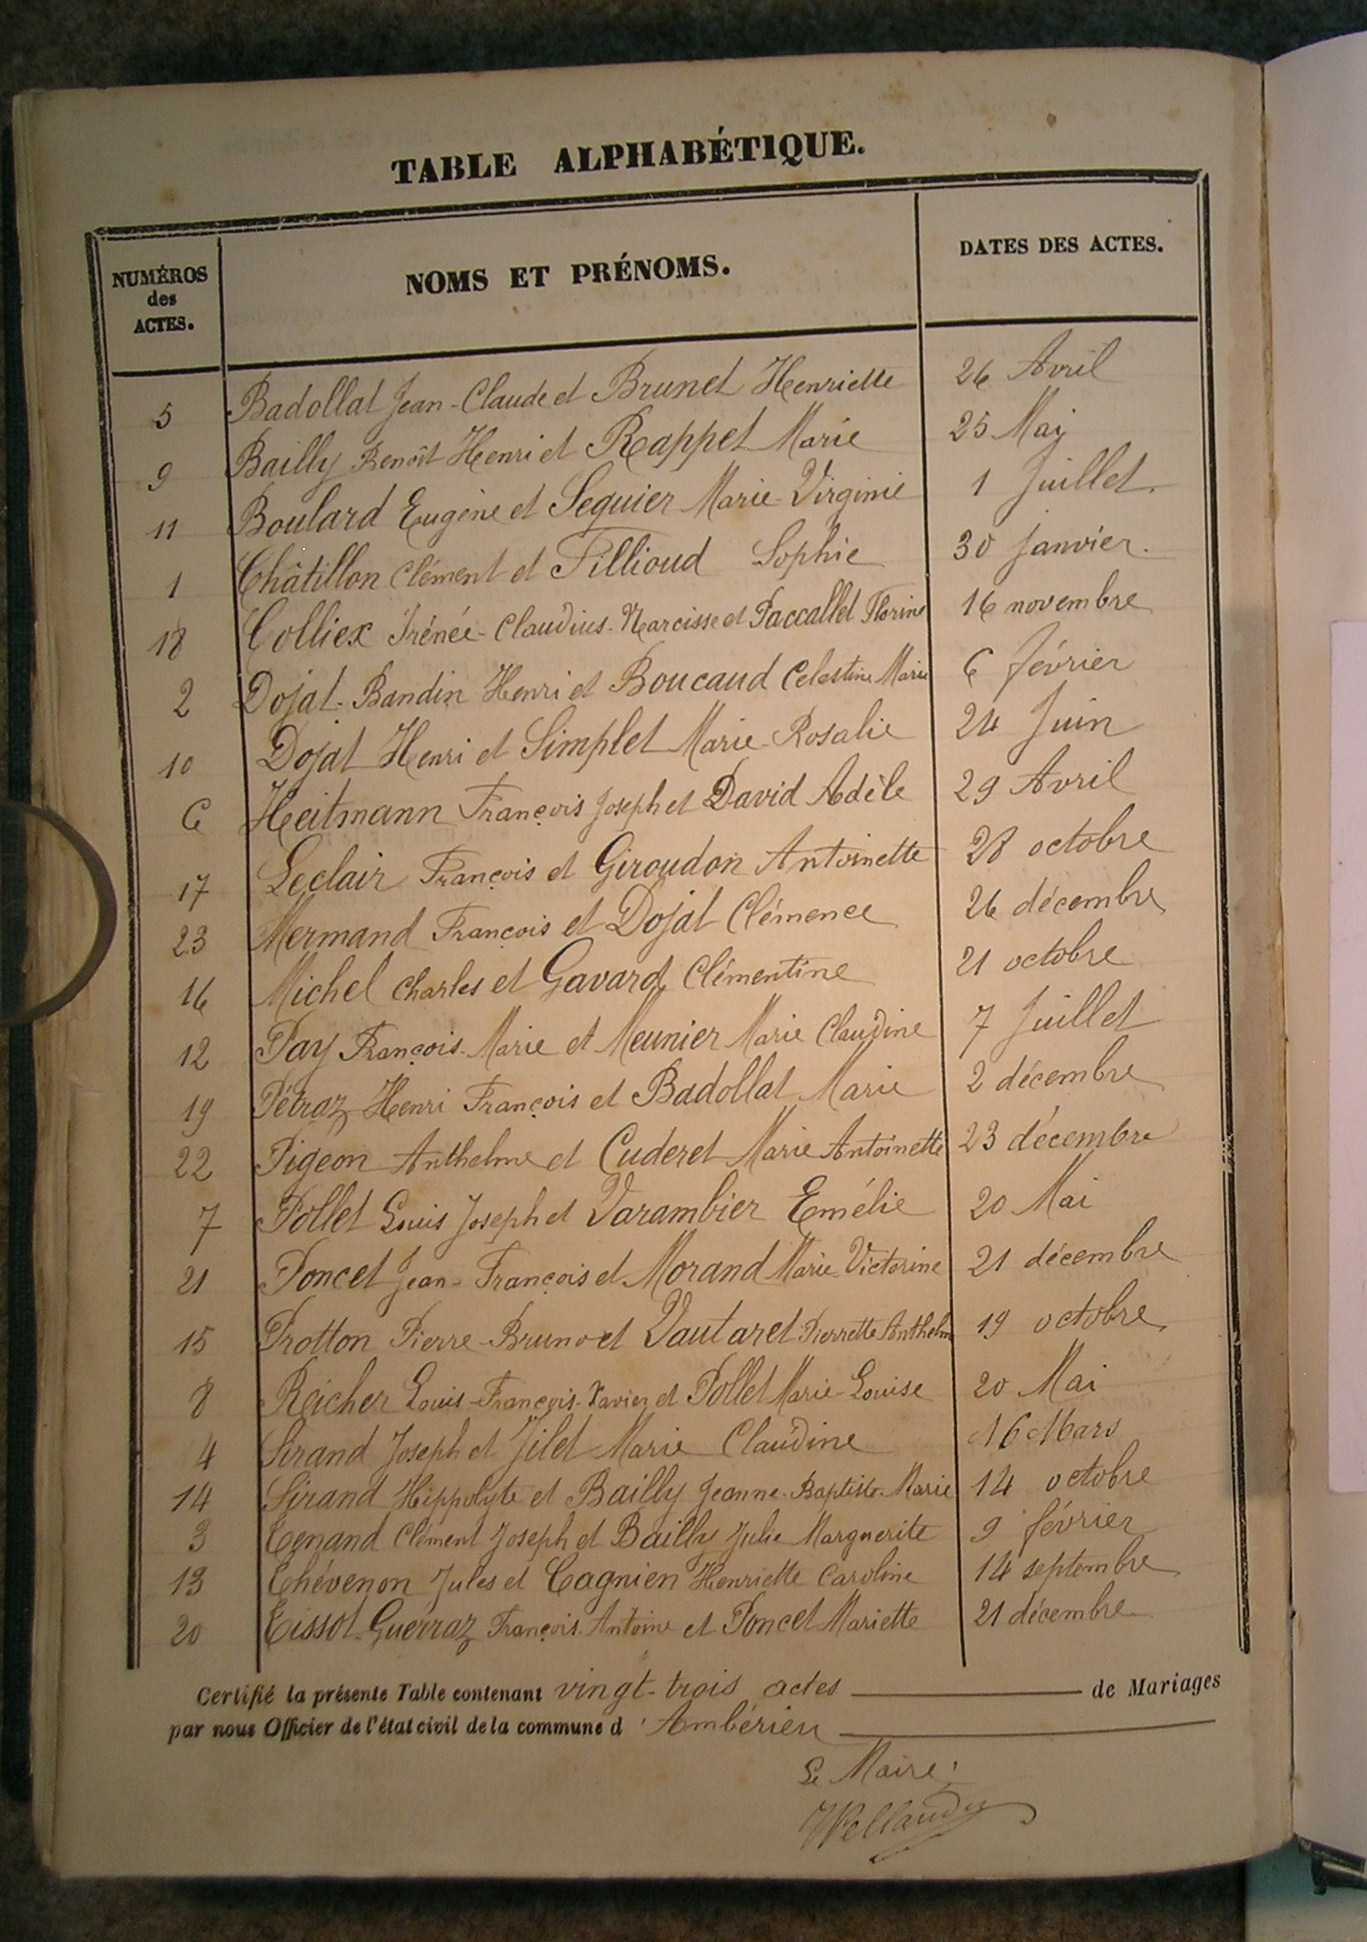 TABLE ALPHABÉTIQUE.
NUMÉROS des ACTES. NOMS ET PRÉNOMS. DATES DES ACTES.
5 Badollat Jean-Claude et Brunet Henriette 26 Avril
9 Bailly Benoît Henri et Reappet Marie 25 Mai
11 Boulard Eugène et Seguier Marie-Virginie 1 Juillet
1 Châtillon Clément et Fillioud Sophie 30 Janvier.
18 Colliex Irénée-Claudius-Narcisse et Paccallet Florine 16 novembre
2 Dojat-Bandin Henri et Boucaud Celestine Marie 6 février
10 Dojat Henri et Simplet Marie-Rosalie 24 Juin
6 Heitmann François Joseph et David Adèle 29 Avril
17 Leclair François et Giroudon Antoinette 28 octobre
23 Mermand François et Dojat Clémence 26 décembre
16 Michel Charles et Gavard Clémentine 21 octobre
12 Pay François-Marie et Meunier Marie Claudine 7 Juillet
19 Pétraz Henri François et Badollat Marie 2 décembre
22 Pigeon Anthelme et Cuderet Marie Antoinette 23 décembre
7 Pollet Louis Joseph et Varambier Emélie 20 Mai
21 Poncet Jean-François et Morand Marie-Victorine 21 décembre
15 Protton Pierre-Bruno et Vautaret Pierrette Anthelm 19 octobre
8 Reicher Louis-François-Xavier et Pollet Marie-Louise 20 Mai
4 Serand Joseph et Jilet Marie Claudine 16 Mars
14 Sirand Hippolyte et Bailly Jeanne-Baptiste-Marie 14 octobre
3 Tenand Clément Joseph et Bailly Julie Marguerite 9 février
13 Thévenon Jules et Cagnien Henriette Caroline 14 septembre
20 Tissot-Guerraz François-Antoine et Poncet Mariette 21 décembre
Certifié la présente Table contenant vingt-trois actes de Mariages
par nous Officier de l'état civil de la commune d'Ambérieu
Le Maire,